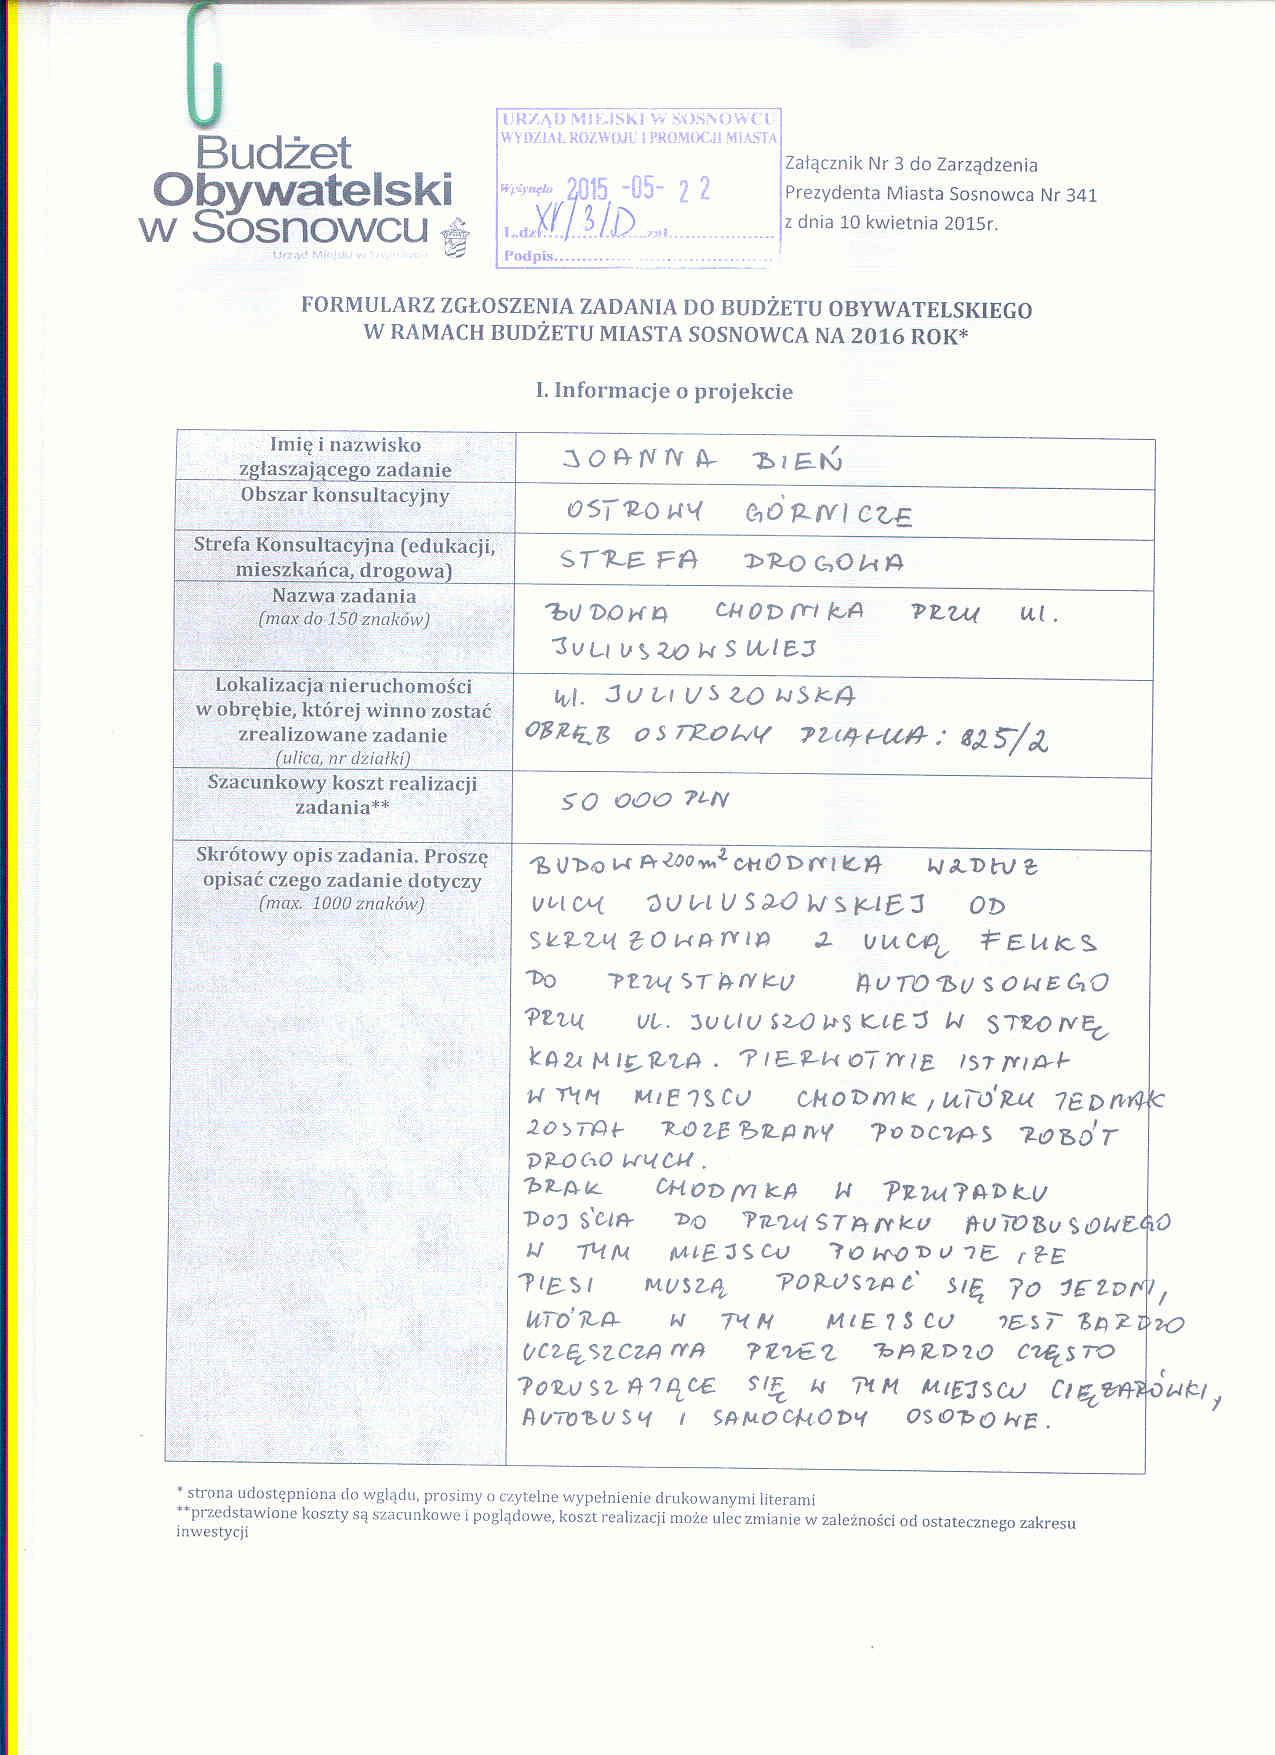 URZĄD MIEJSKI W SOSNOWCU
WYDZIAŁ ROZWOJU I PROMOCJI MIASTA
Wpłynęło 2015 -05- 22
L.dz. XV/3/D zał.
Podpis
Budżet
Obywatelski
w Sosnowcu
Urząd Miejski w Sosnowcu
Załącznik Nr 3 do Zarządzenia
Prezydenta Miasta Sosnowca Nr 341
z dnia 10 kwietnia 2015r.
FORMULARZ ZGŁOSZENIA ZADANIA DO BUDŻETU OBYWATELSKIEGO
W RAMACH BUDŻETU MIASTA SOSNOWCA NA 2016 ROK*
I. Informacje o projekcie
Imię i nazwisko
zgłaszającego zadanie
JOANNA BIEŃ
Obszar konsultacyjny
OSTROWY GÓRNICZE
Strefa Konsultacyjna (edukacji,
mieszkańca, drogowa)
STREFA DROGOWA
Nazwa zadania
(max do 150 znaków)
BUDOWA CHODNIKA PRZY ul.
JULIUSZOWSKIEJ
Lokalizacja nieruchomości
w obrębie, której winno zostać
zrealizowane zadanie
(ulica, nr działki)
ul. JULIUSZOWSKA
OBRĘB OSTROWY DZIAŁKA: 825/2
Szacunkowy koszt realizacji
zadania**
50 000 PLN
Skrótowy opis zadania. Proszę
opisać czego zadanie dotyczy
(max. 1000 znaków)
BUDOWA 200 m² CHODNIKA WZDŁUŻ
ULICY JULIUSZOWSKIEJ OD
SKRZYŻOWANIA Z ULICĄ FELIKS
DO PRZYSTANKU AUTOBUSOWEGO
PRZY UL. JULIUSZOWSKIEJ W STRONĘ
KAZIMIERZA. PIERWOTNIE ISTNIAŁ
W TYM MIEJSCU CHODNIK, KTÓRY JEDNAK
ZOSTAŁ ROZEBRANY PODCZAS ROBÓT
DROGOWYCH.
BRAK CHODNIKA W PRZYPADKU
DOJŚCIA DO PRZYSTANKU AUTOBUSOWEGO
W TYM MIEJSCU POWODUJE, ŻE
PIESI MUSZĄ PORUSZAĆ SIĘ PO JEZDNI,
KTÓRA W TYM MIEJSCU JEST BARDZO
UCZĘSZCZANA PRZEZ BARDZO CZĘSTO
PORUSZAJĄCE SIĘ W TYM MIEJSCU CIĘŻARÓWKI,
AUTOBUSY I SAMOCHODY OSOBOWE.
* strona udostępniona do wglądu, prosimy o czytelne wypełnienie drukowanymi literami
**przedstawione koszty są szacunkowe i poglądowe, koszt realizacji może ulec zmianie w zależności od ostatecznego zakresu
inwestycji